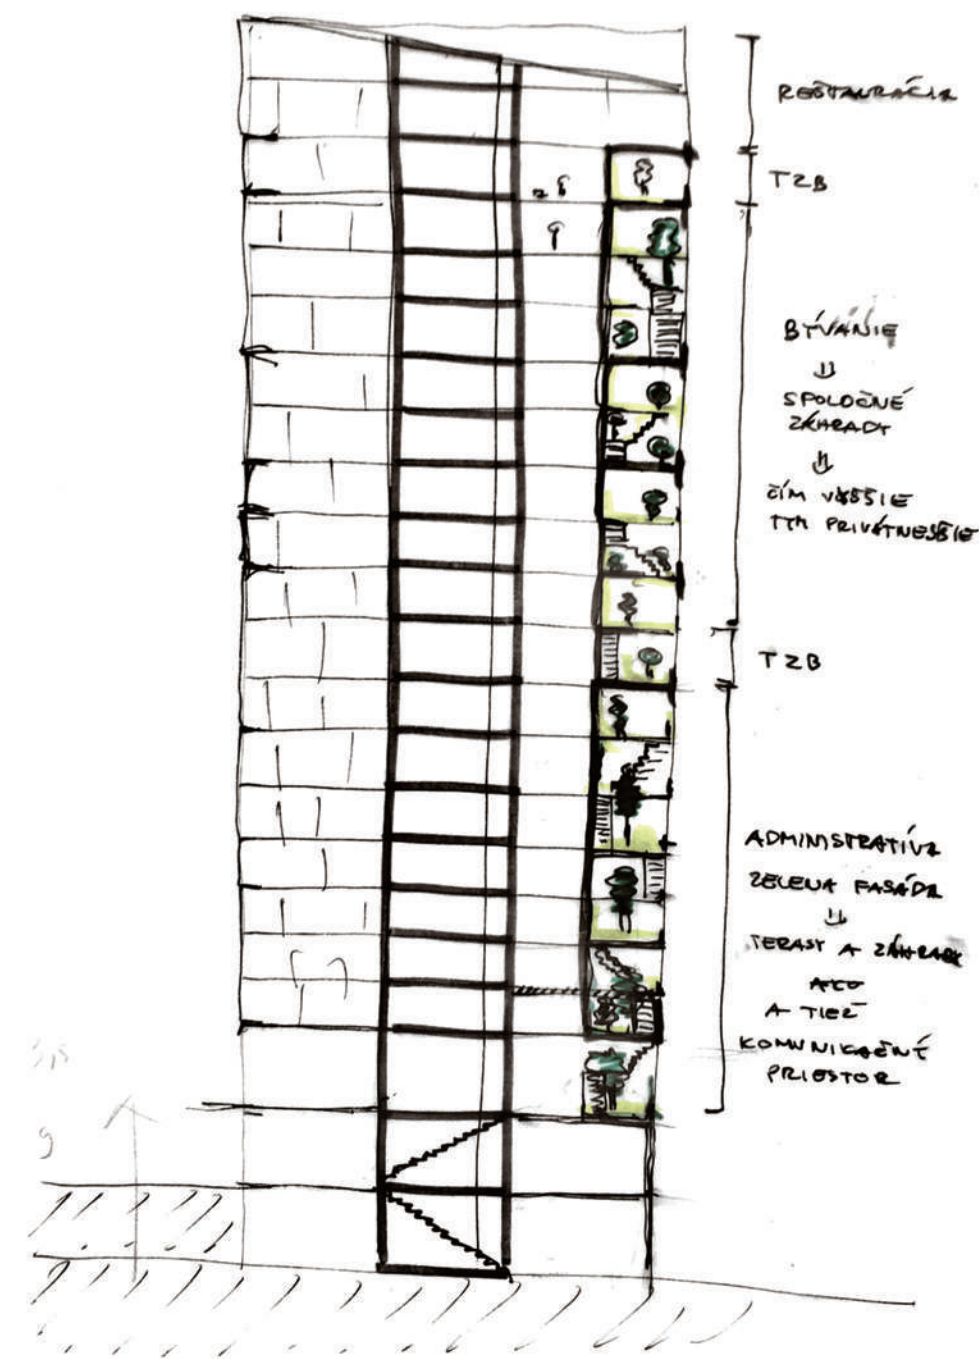 REŠTAURÁCIA
TZB
BÝVANIE
SPOLOČNÉ
ZÁHRADY
ČÍM VYŠŠIE
TÝM PRIVÁTNEJŠIE
TZB
ADMINISTRATÍVA
ZELENA FASÁDA
TERASY A ZÁHRADY
AKO
A TIEŽ
KOMUNIKAČNÝ
PRIESTOR
9